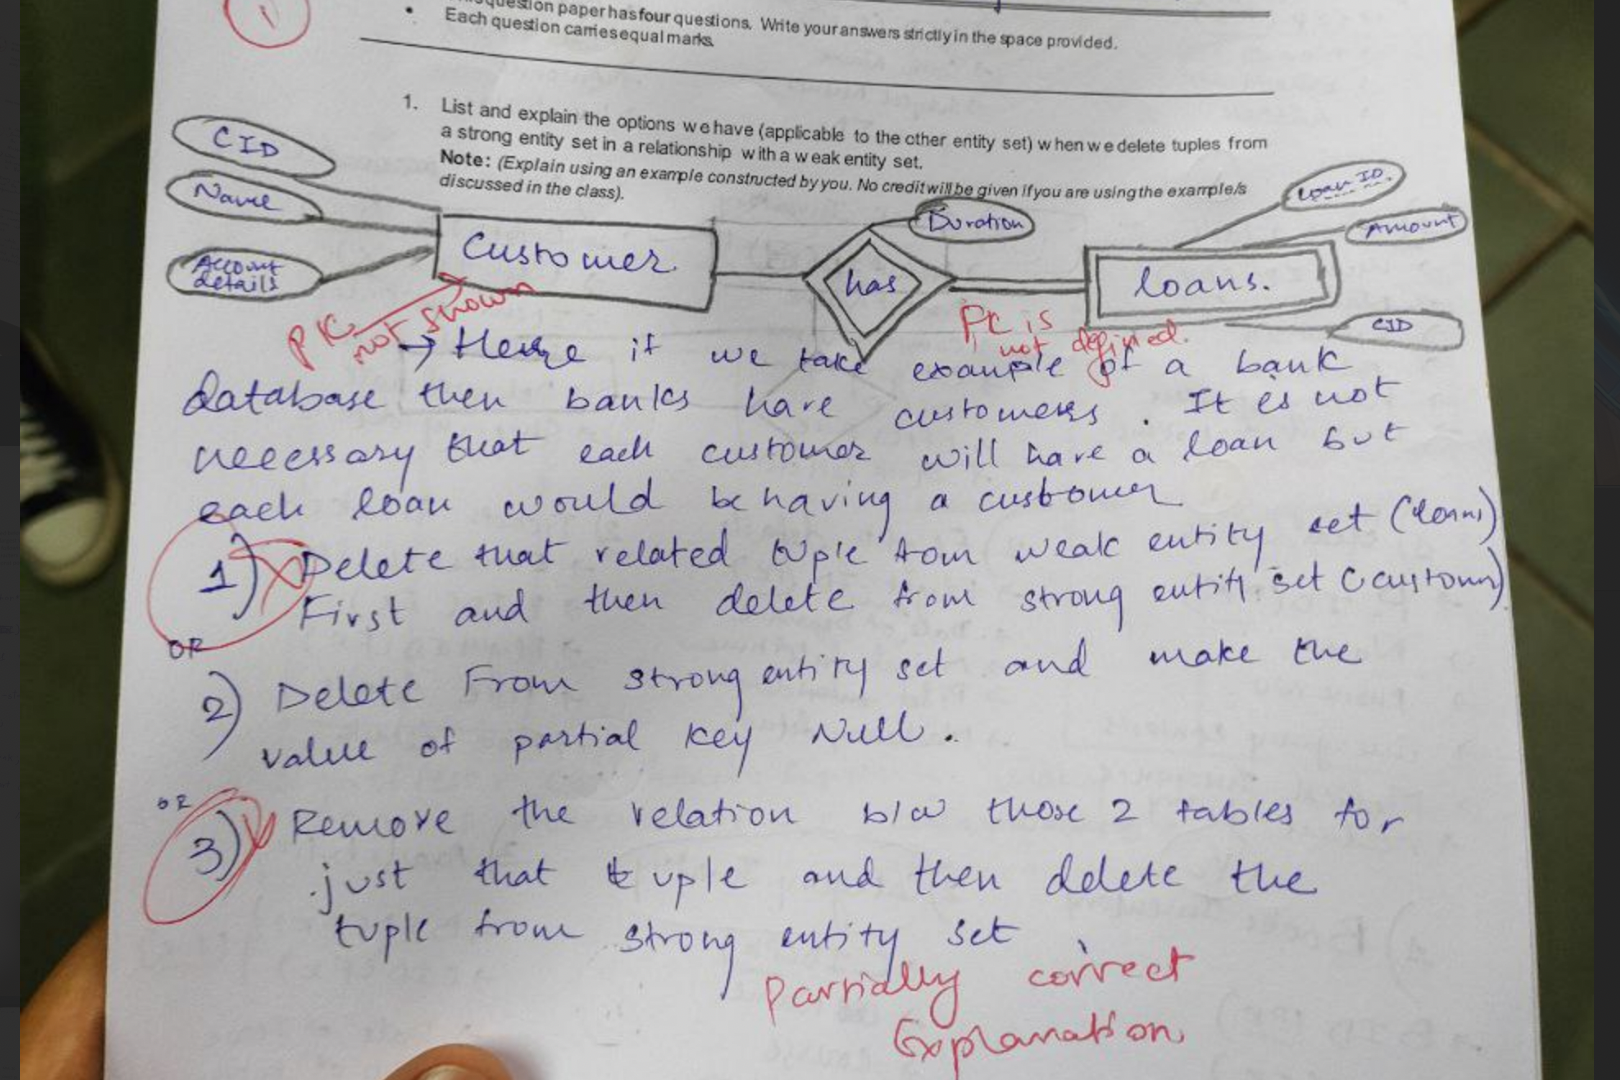 question paper has four questions. Write your answers strictly in the space provided.
• Each question carries equal marks.
1. List and explain the options we have (applicable to the other entity set) when we delete tuples from
a strong entity set in a relationship with a weak entity set.
Note: (Explain using an example constructed by you. No credit will be given if you are using the example/s
discussed in the class).
CID
Name
Account
details
Customer
Duration
has
Loan ID
Amount
loans.
CID
PK
not shown
PK is
not defined.
→ Here if we take example of a bank
database then banks have customers. It is not
necessary that each customer will have a loan but
each loan would be having a customer
1) Delete that related tuple from weak entity set (loans)
First and then delete from strong entity set (customer)
OR
2) Delete From strong entity set and make the
value of partial key Null.
OR
3) Remove the relation b/w those 2 tables for
just that tuple and then delete the
tuple from strong entity set.
Partially correct
Explanation